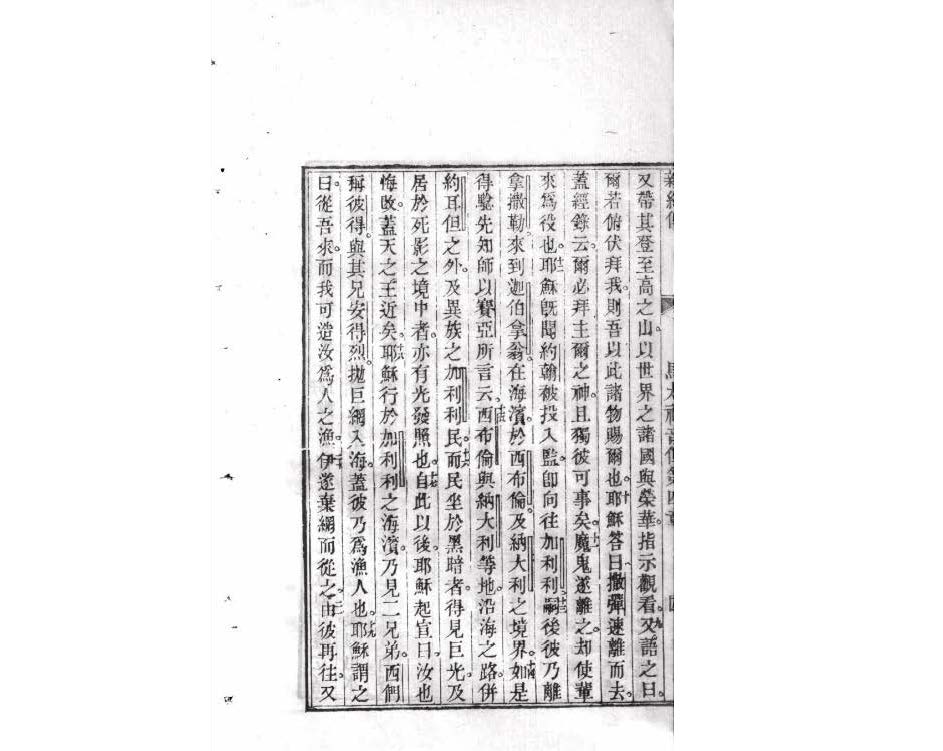 馬太福音傳第四章
又帶其登至高之山。以世界之諸國與榮華。指示觀看。九又語之曰。
爾若俯伏拜我。則吾以此諸物賜爾也。十耶穌答曰撒彈速離而去。
蓋經錄云。爾必拜主爾之神。且獨彼可事矣。魔鬼遂離之。却使輩
來爲役也。耶穌旣聞約翰被投入監。卽向往加利利。嗣後彼乃離
拿撒勒。來到迦伯拿翁。在海濱。於西布倫及納大利之境界。如是
得驗先知師以賽亞所言云。西布倫與納大利等地。沿海之路。併
約耳但之外。及異族之加利利民。而民坐於黑暗者。得見巨光。及
居於死影之境中者。亦有光發照也。自此以後。耶穌起宣曰。汝也
悔改。蓋天之王近矣。耶穌行於加利利之海濱。乃見二兄弟。西們
稱彼得。與其兄安得烈。拋巨網入海。蓋彼乃爲漁人也。耶穌謂之
曰。從吾來。而我可造汝爲人之漁。伊遂棄網而從之。由彼再往。又